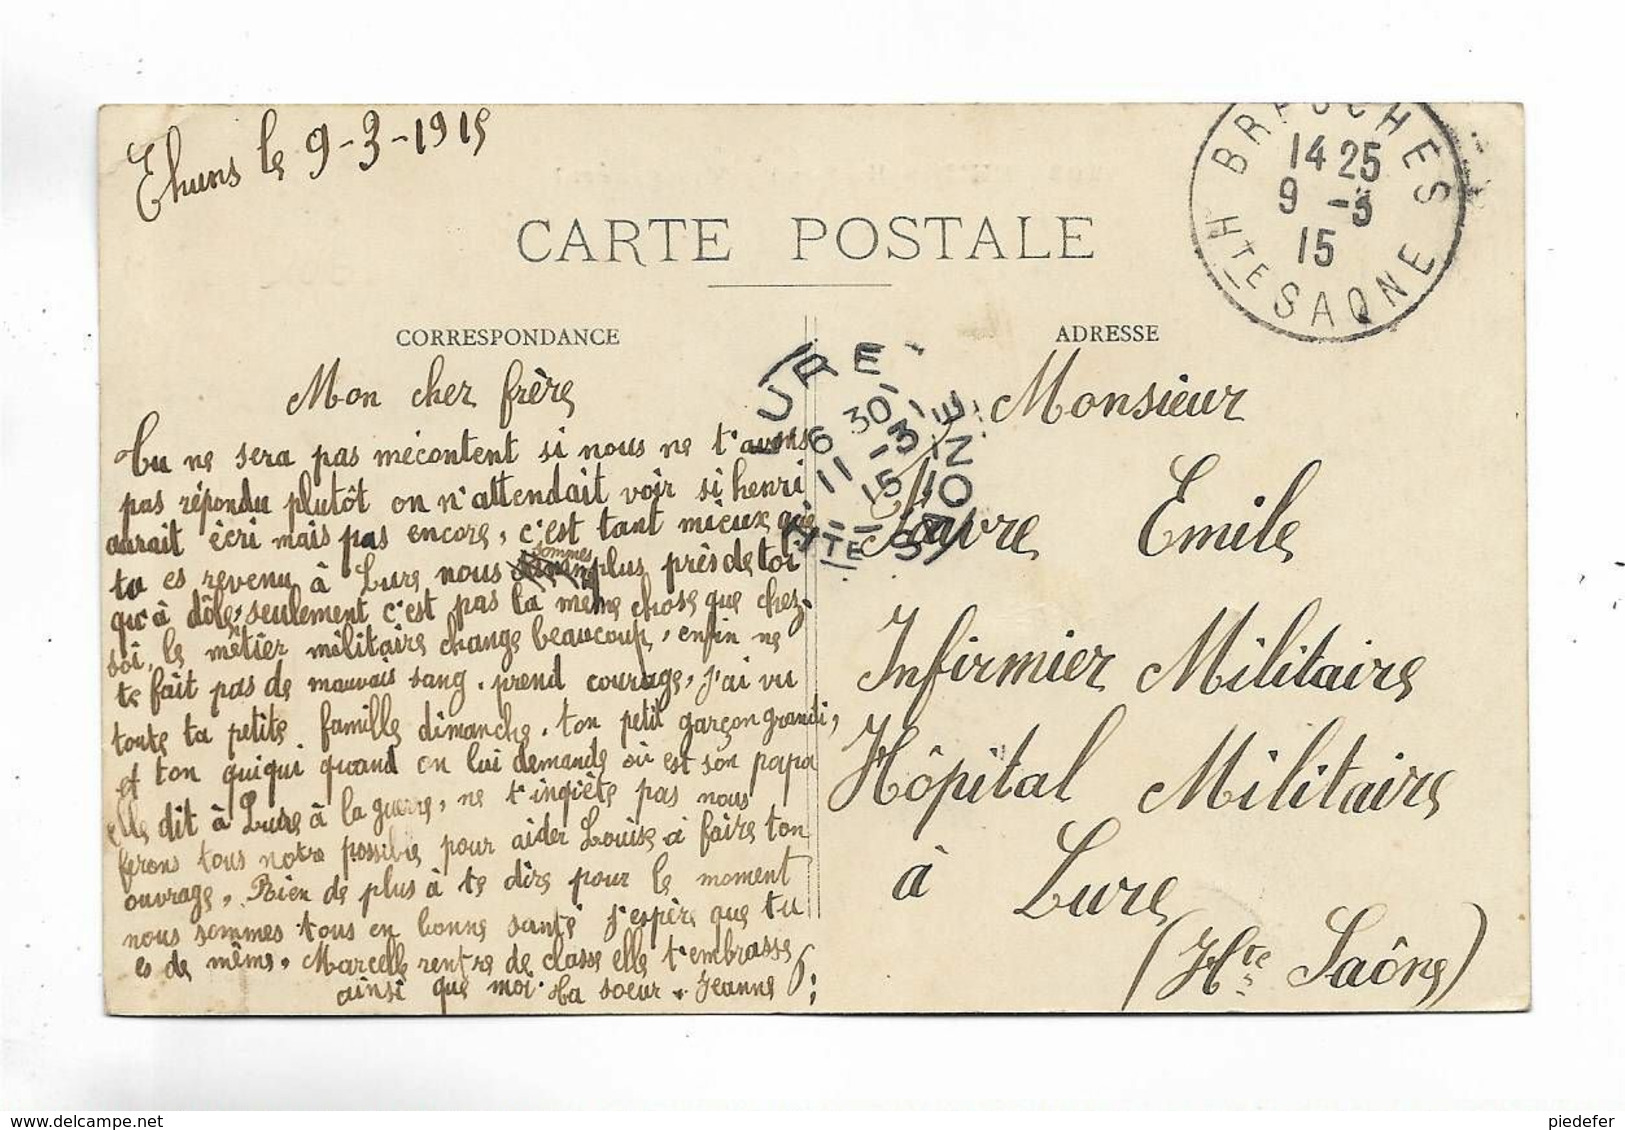 Ehuns le 9-3-1915
BREUCHES
14 25
9 -3
15
Hte SAONE
CARTE POSTALE
CORRESPONDANCE
ADRESSE
LURE
6 30
11 -3
15
Hte SAONE
Mon cher frère
Tu ne sera pas mécontent si nous ne t'avons
pas répondu plutôt on n'attendait voir si henri
aurait écri mais pas encore, c'est tant mieux que
tu es revenu à Lure nous sommes plus près de toi
qu'à dôle, seulement c'est pas la même chose que chez
soi, le mêtier militaire change beaucoup, enfin ne
te fait pas de mauvais sang, prend courage, j'ai vu
toute ta petite famille dimanche, ton petit garçon grandi,
et ton quiqui quand on lui demande où est son papa
elle dit à Lure à la guerre, ne t'inqiète pas nous
ferons tous notre possible pour aider Louise à faire ton
ouvrage, Rien de plus à te dire pour le moment
nous sommes tous en bonne santé j'espère que tu
es de même, Marcelle rentre de classe elle t'embrasse
ainsi que moi. Ta soeur. Jeanne
Monsieur
Emile
Infirmier Militaire
Hôpital Militaire
à Lure
(Hte Saône)
piedefer